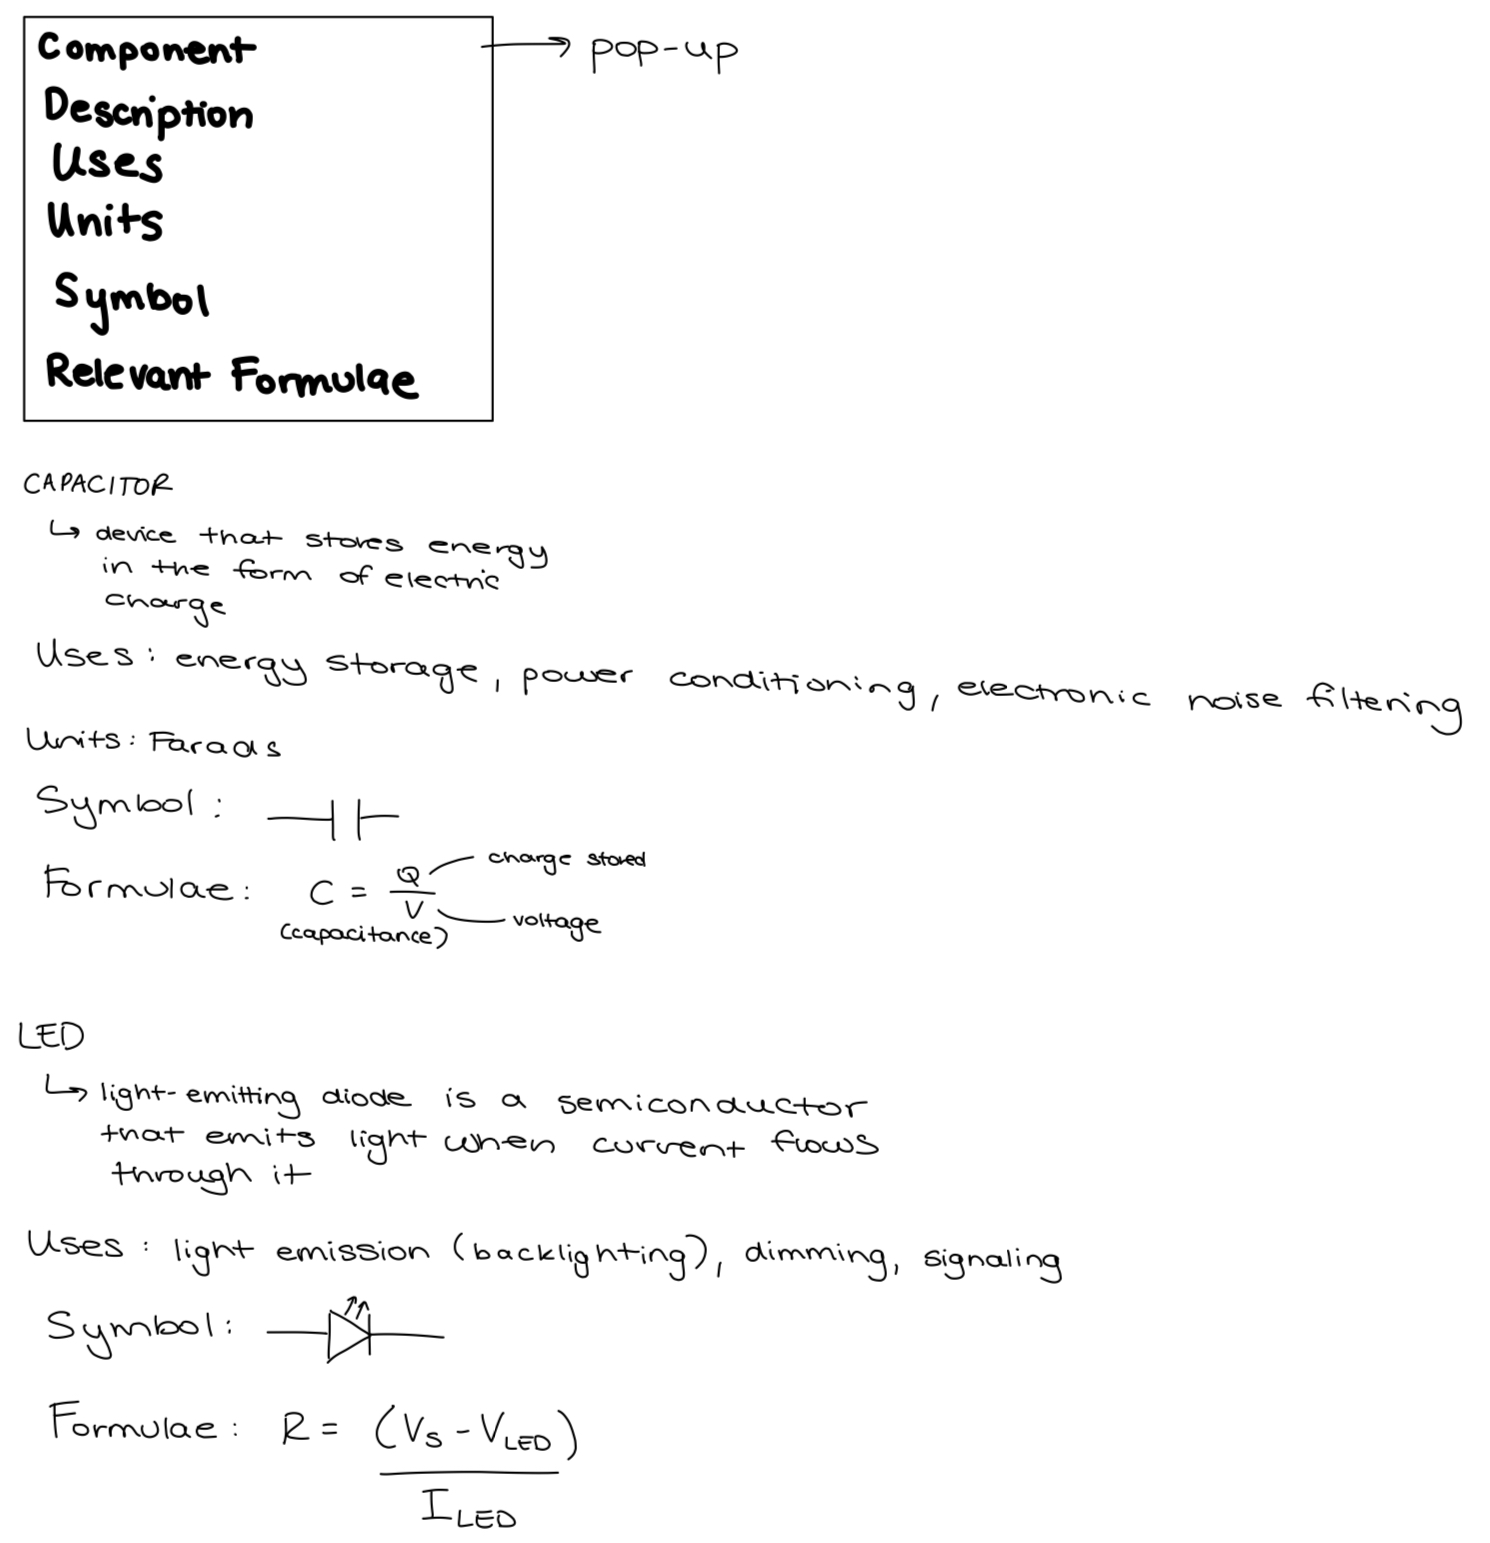 Component
→ pop-up
Description
Uses
Units
Symbol
Relevant Formulae
CAPACITOR
↳ device that stores energy
in the form of electric
charge
Uses: energy storage, power conditioning, electronic noise filtering
Units: Farads
Symbol:
Formulae: C = Q/V
charge stored
voltage
(capacitance)
LED
↳ light-emitting diode is a semiconductor
that emits light when current flows
through it
Uses: light emission (backlighting), dimming, signaling
Symbol:
Formulae: R = (VS - VLED)
ILED